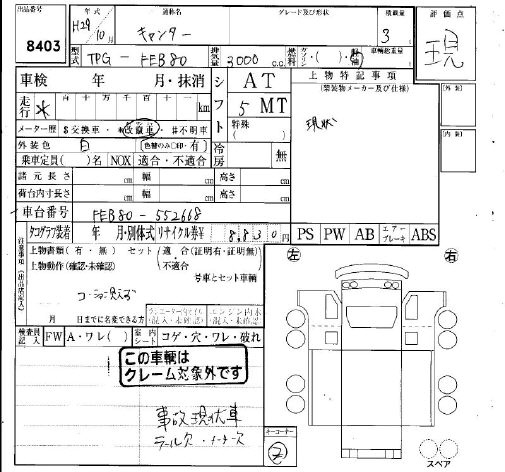 出品番号 年式 通称名 グレード及び形状 積載量 評価点
8403 H29/10月 キャンター 3 現
型式 TPG - FEB80 排気量 3000 c.c. 燃料 ガソリン・( )・軽油 車輌総重量
車検 年 月・抹消 シフト AT 上物特記事項
(架装物メーカー及び仕様) (外装)
走行 * 百 十 万 千 百 十 一 km 5 MT 現状
メーター歴 $交換車・*改竄車・#不明車 特殊 ( )
外装色 白 (色替のみ○印・有) 冷房 無 (内装)
乗車定員( )名 NOX 適合・不適合
諸元長さ cm 幅 cm 高さ cm
荷台内寸長さ cm 幅 cm 高さ cm
車台番号 FEB80 - 552668
タコグラフ装着 年 月・別体式 リサイクル券¥ 8,830円 PS PW AB エアーブレーキ ABS
上物書類(有・無) セット 適合(証明有・証明無) 左 右
上物動作(確認・未確認) 不適合
号車とセット車輌
月 日までに名変できる方
検査員記入 FW A・ワレ( ) 室内シート コゲ・穴・ワレ・破れ
この車輌は
クレーム対象外です
事故現状車
コーナー
スペア